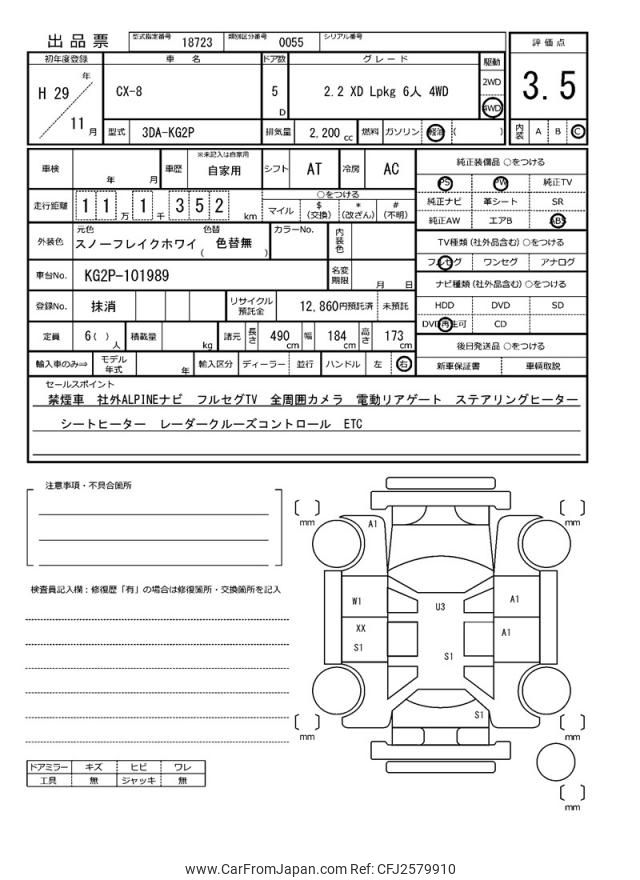 出品票 型式指定番号 18723 類別区分番号 0055 シリアル番号
評価点
3.5
内装 A B C
初年度登録 車名 ドア数 グレード 駆動
H 29 年 CX-8 5 D 2.2 XD Lpkg 6人 4WD 2WD
4WD
11 月 型式 3DA-KG2P 排気量 2,200 cc 燃料 ガソリン 軽油 ( )
車検 年 月 車歴 ※未記入は自家用 自家用 シフト AT 冷房 AC
走行距離 1 1 万 1 千 3 5 2 km ○をつける
マイル $(交換) *(改ざん) #(不明)
外装色 元色 スノーフレイクホワイ 色替 ( 色替無 ) カラーNo. 内装色
車台No. KG2P-101989 名変期限 月 日
登録No. 抹消 リサイクル預託金 12,860円預託済 未預託
定員 6 ( ) 人 積載量 kg 諸元 長さ 490 cm 幅 184 cm 高さ 173 cm
輸入車のみ⇒ モデル年式 年 輸入区分 ディーラー 並行 ハンドル 左 右
純正装備品 ○をつける
PS PW 純正TV
純正ナビ 革シート SR
純正AW エアB ABS
TV種類 (社外品含む) ○をつける
フルセグ ワンセグ アナログ
ナビ種類 (社外品含む) ○をつける
HDD DVD SD
DVD再生可 CD
後日発送品 ○をつける
新車保証書 車輌取説
セールスポイント
禁煙車 社外ALPINEナビ フルセグTV 全周囲カメラ 電動リアゲート ステアリングヒーター
シートヒーター レーダークルーズコントロール ETC
注意事項・不具合箇所
検査員記入欄：修復歴「有」の場合は修復箇所・交換箇所を記入
ドアミラー キズ ヒビ ワレ
工具 無 ジャッキ 無
[ ] mm
[ ] mm
A1
W1
U3
A1
XX
S1
A1
S1
S1
[ ] mm
[ ] mm
[ ] mm
www.CarFromJapan.com Ref: CFJ2579910